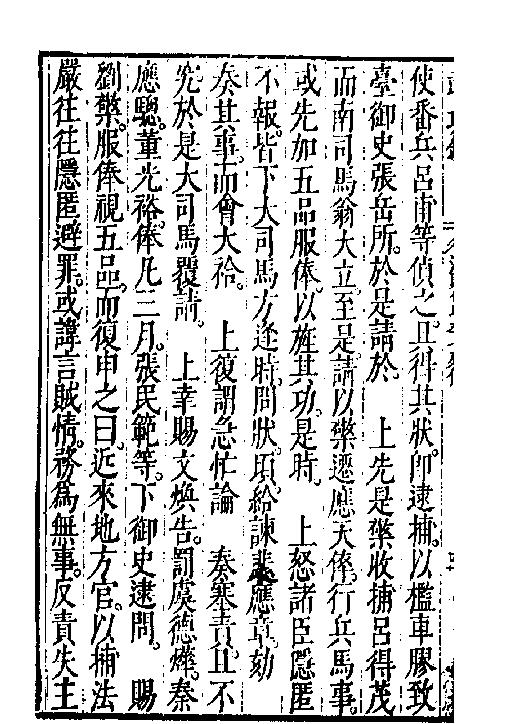 使番兵呂甫等偵之且得其狀即逮捕以檻車膠致
臺御史張岳所於是請於　上先是槳收捕呂得茂
而南司馬翁大立至是請以槳遷應天倅行兵馬事
或先加五品服俸以旌其功是時　上怒諸臣隱匿
不報皆下大司馬方逢時問狀頃給諫裴應章劾
奏其事而會大祫　上復謂急忙論　奏塞責且不
究於是大司馬覆請　上幸賜文煥告罰虞德燁秦
應驄董光裕俸凡三月張民範等下御史逮問　賜
劉槳服俸視五品而復申之曰近來地方官以捕法
嚴往往隱匿避罪或諱言賊情務為無事反責失主